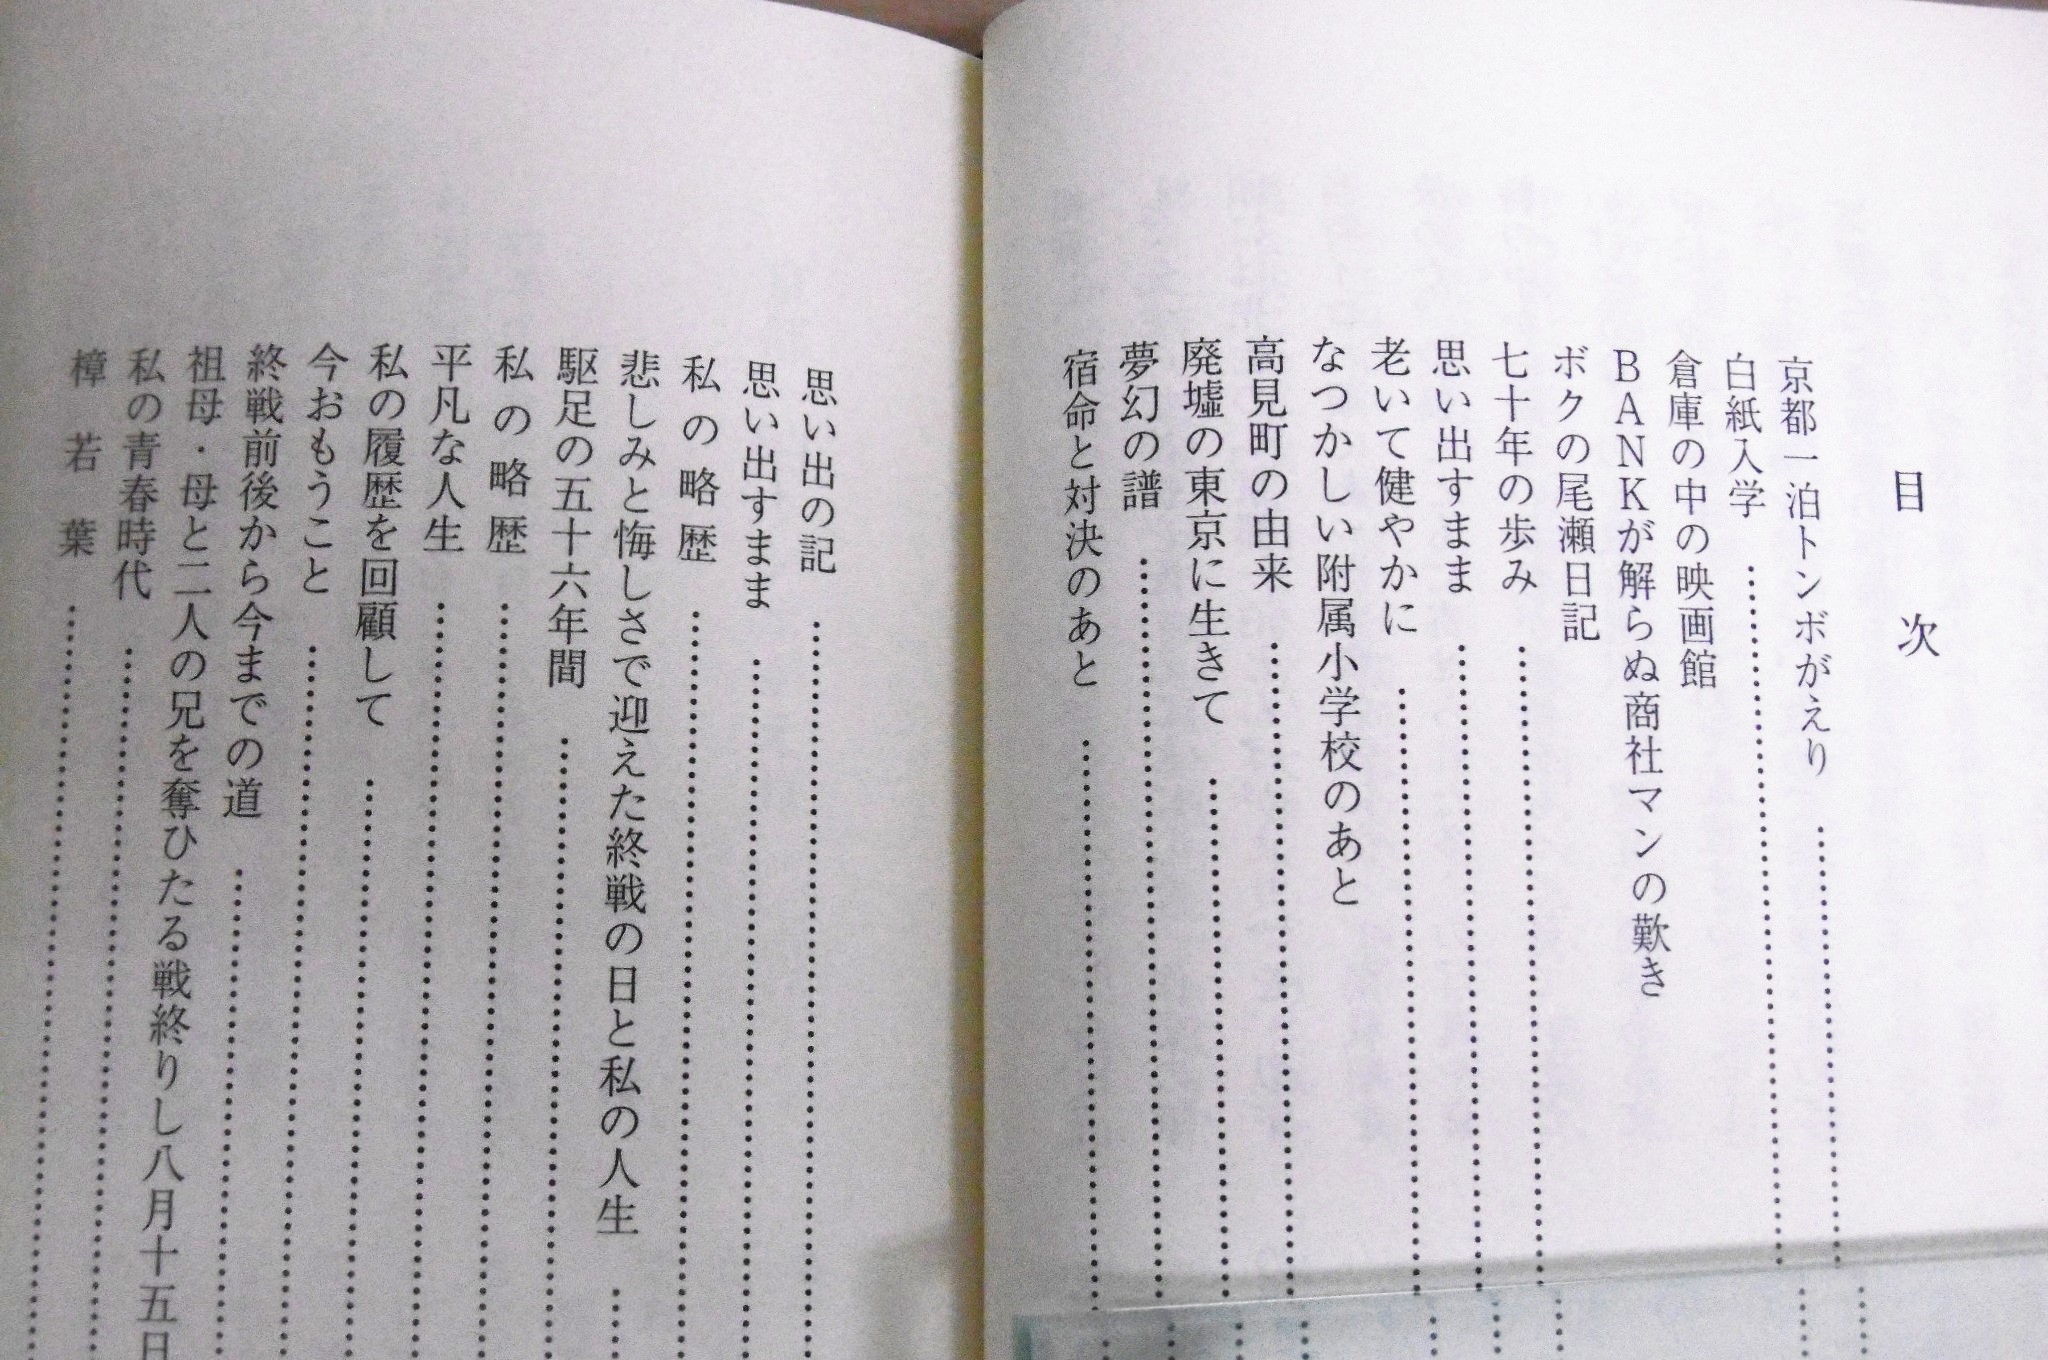 目次
京都一泊トンボがえり
白紙入学
倉庫の中の映画館
BANKが解らぬ商社マンの歎き
ボクの尾瀬日記
七十年の歩み
思い出すまま
老いて健やかに
なつかしい附属小学校のあと
高見町の由来
廃墟の東京に生きて
夢幻の譜
宿命と対決のあと
思い出の記
思い出すまま
私の略歴
悲しみと悔しさで迎えた終戦の日と私の人生
駆足の五十六年間
私の略歴
平凡な人生
私の履歴を回顧して
今おもうこと
終戦前後から今までの道
祖母・母と二人の兄を奪ひたる戦終りし八月十五日
私の青春時代
樟若葉